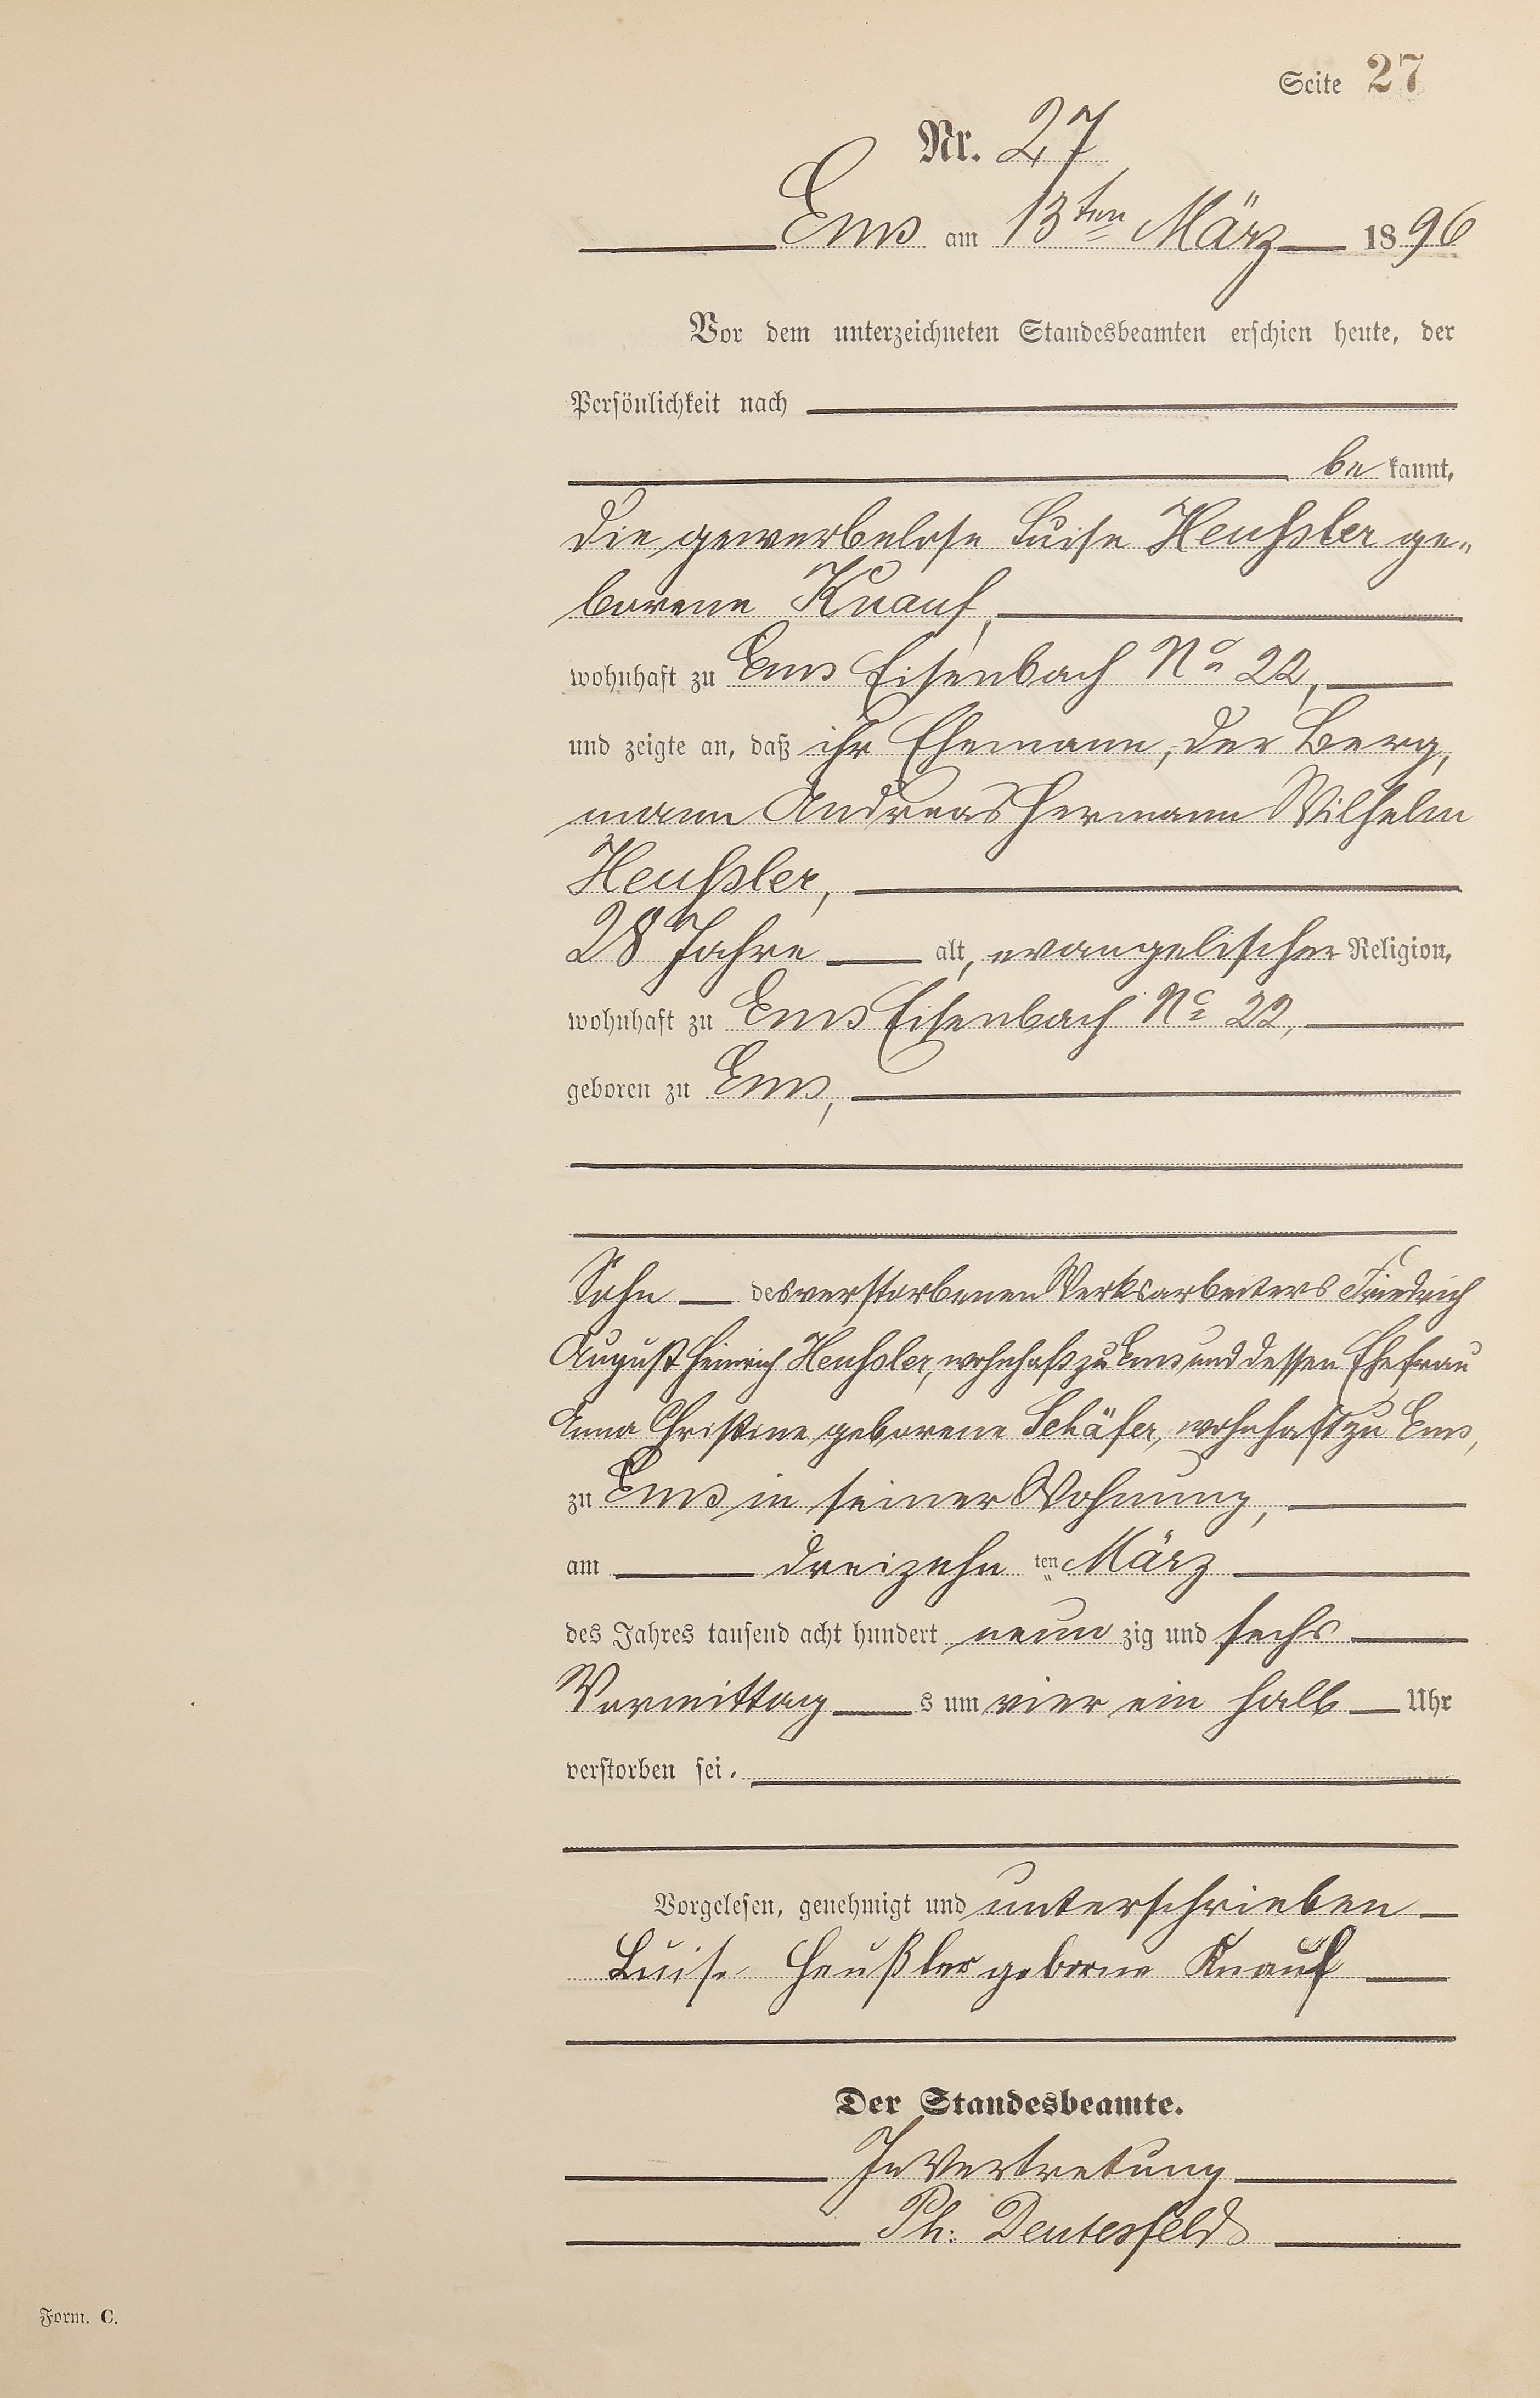 Seite 27
Nr. 27
Ems am 13ten März 1896
Vor dem unterzeichneten Standesbeamten erschien heute, der
Persönlichkeit nach
be kannt,
die gewerbelose Luise Heußler ge„
borene Knauf,
wohnhaft zu Ems Eisenbach No 22,
und zeigte an, daß ihr Ehemann, der Berg,
mann Andreas Hermann Wilhelm
Heußler,
28 Jahre alt, evangelischer Religion,
wohnhaft zu Ems Eisenbach No 22,
geboren zu Ems,
Sohn des verstorbenen Werksarbeiters Friedrich
August Heinrich Heußler, wohnhaft zu Ems und dessen Ehefrau
Anna Christine geborene Schäfer, wohnhaft zu Ems,
zu Ems in seiner Wohnung,
am dreizehn ten März
des Jahres tausend acht hundert neun zig und sechs
Vormittag s um vier ein halb Uhr
verstorben sei.
Vorgelesen, genehmigt und unterschrieben
Luise Heußler geborne Knauf
Der Standesbeamte.
In Vertretung
Ph: Deutesfeld
Form. C.